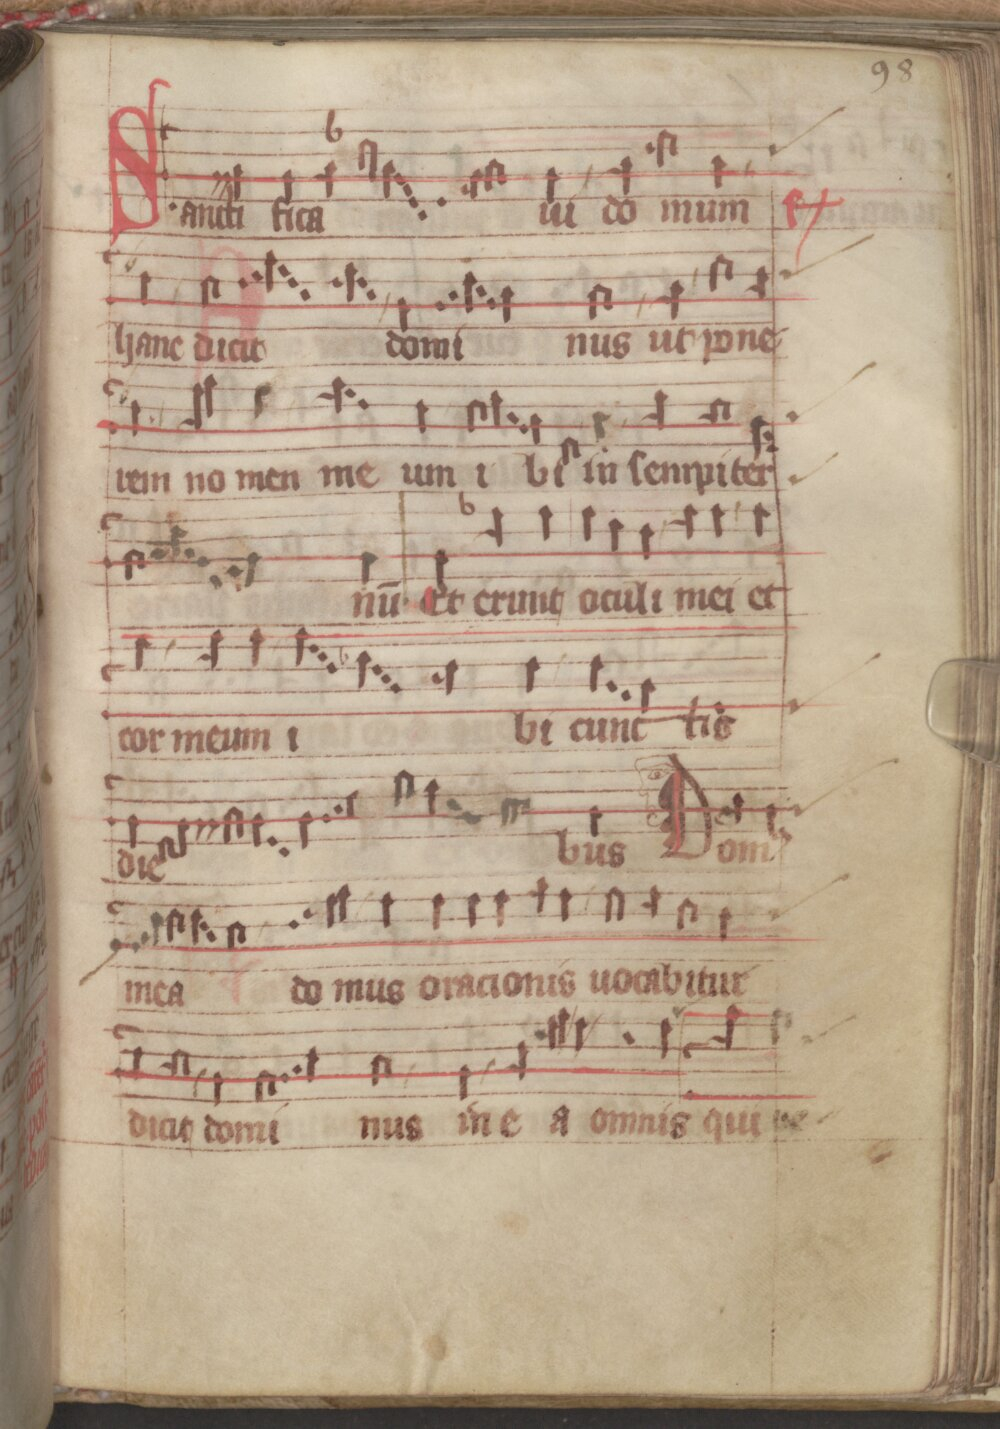 98
Sancti fica ui do mum
hanc dicit domi nus ut pone
rem no men me um i bi in sempiter
nū· Et erunt oculi mei et
cor meum i bi cunc tis
die bus Dom
mea do mus oracionis uocabitur
dicit domi nus in e a omnis qui pe